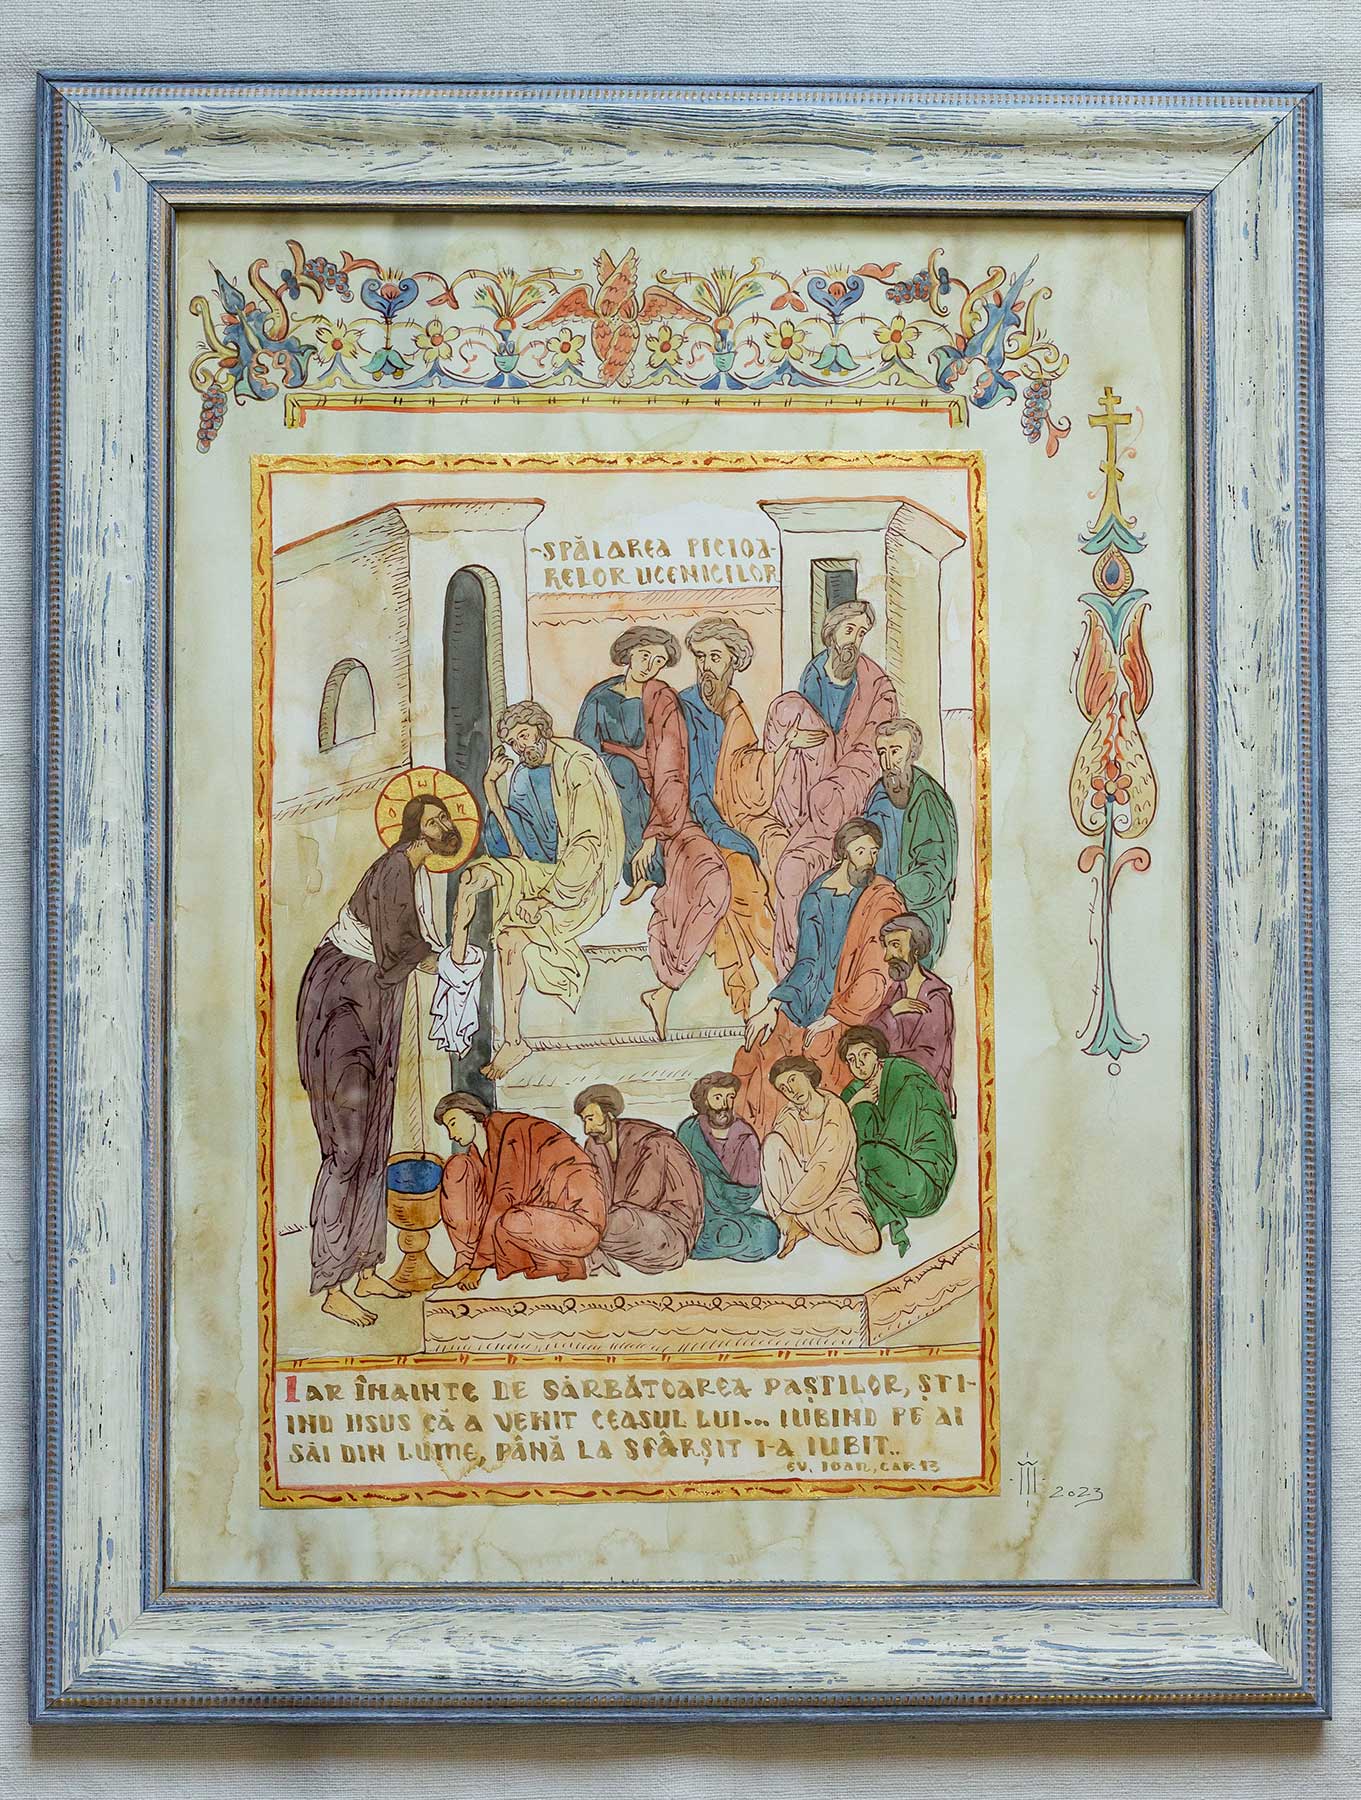 -SPĂLAREA PICIOA-
RELOR UCENICILOR
O W N
IAR ÎNAINTE DE SĂRBĂTOAREA PAȘTILOR, ȘTI-
IND IISUS CĂ A VENIT CEASUL LUI... IUBIND PE AI
SĂI DIN LUME, PÂNĂ LA SFÂRȘIT I-A IUBIT..
EV. IOAN, CAP. 13
2023